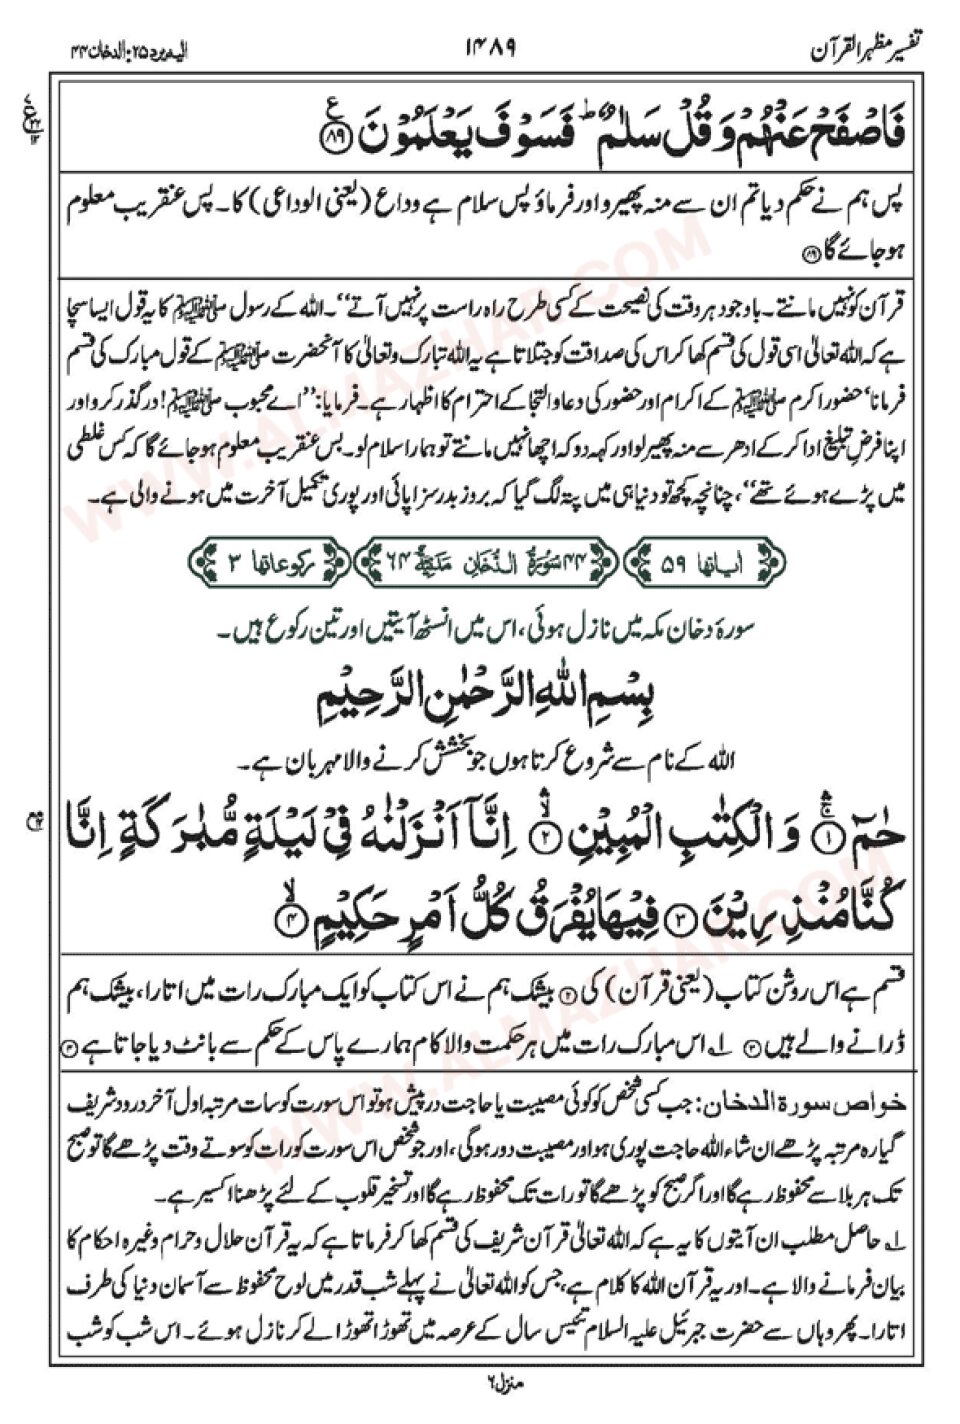 تفسیر مظہر القرآن
۱۴۸۹
الیہ یرد ۲۵: الدخان ۴۴
فَاصْفَحْ عَنْهُمْ وَقُلْ سَلٰمٌ ؕ فَسَوْفَ يَعْلَمُوْنَ ﴿۸۹﴾ ع
پس ہم نے حکم دیا تم ان سے منہ پھیرو اور فرماؤ پس سلام ہے وداع (یعنی الوداعی) کا۔ پس عنقریب معلوم
ہو جائے گا ﴿۸۹﴾
قرآن کو نہیں مانتے۔ باوجود ہر وقت کی نصیحت کے کسی طرح راہ راست پر نہیں آتے‘‘۔ اللہ کے رسول ﷺ کا یہ قول ایسا سچا
ہے کہ اللہ تعالیٰ اسی قول کی قسم کھا کر اس کی صداقت کو جتلاتا ہے یہ اللہ تبارک و تعالیٰ کا آنحضرت ﷺ کے قول مبارک کی قسم
فرمانا‘ حضور اکرم ﷺ کے اکرام اور حضور کی دعا و التجا کے احترام کا اظہار ہے۔ فرمایا: ’’اے محبوب ﷺ! درگذر کرو اور
اپنا فرضِ تبلیغ ادا کر کے ادھر سے منہ پھیر لو اور کہہ دو کہ اچھا نہیں مانتے تو ہمارا سلام لو۔ بس عنقریب معلوم ہو جائے گا کہ کس غلطی
میں پڑے ہوئے تھے‘‘، چنانچہ کچھ تو دنیا ہی میں پتہ لگ گیا کہ بروز بدر سزا پائی اور پوری تکمیل آخرت میں ہونے والی ہے۔
اٰیاتها ۵۹ ۴۴ سُوْرَةُ الدُّخَانِ مَكِّیَّةٌ ۶۴ ركوعاتها ۳
سورۂ دخان مکہ میں نازل ہوئی، اس میں انسٹھ آیتیں اور تین رکوع ہیں۔
بِسْمِ اللّٰهِ الرَّحْمٰنِ الرَّحِيْمِ
اللہ کے نام سے شروع کرتا ہوں جو بخشش کرنے والا مہربان ہے۔
حٰمٓ ﴿۱﴾ وَالْكِتٰبِ الْمُبِيْنِ ﴿۲﴾ اِنَّاۤ اَنْزَلْنٰهُ فِيْ لَيْلَةٍ مُّبٰرَكَةٍ اِنَّا
كُنَّا مُنْذِرِيْنَ ﴿۳﴾ فِيْهَا يُفْرَقُ كُلُّ اَمْرٍ حَكِيْمٍ ﴿۴﴾
قسم ہے اس روشن کتاب (یعنی قرآن) کی ﴿۲﴾ بیشک ہم نے اس کتاب کو ایک مبارک رات میں اتارا، بیشک ہم
ڈرانے والے ہیں ﴿۳﴾ ۱؎ اس مبارک رات میں ہر حکمت والا کام ہمارے پاس کے حکم سے بانٹ دیا جاتا ہے ﴿۴﴾
خواص سورۃ الدخان: جب کسی شخص کو کوئی مصیبت یا حاجت درپیش ہو تو اس سورت کو سات مرتبہ اول آخر درود شریف
گیارہ مرتبہ پڑھے ان شاء اللہ حاجت پوری ہو اور مصیبت دور ہو گی، اور جو شخص اس سورت کو رات کو سوتے وقت پڑھے گا تو صبح
تک ہر بلا سے محفوظ رہے گا اور اگر صبح کو پڑھے گا تو رات تک محفوظ رہے گا اور تسخیر قلوب کے لئے پڑھنا اکسیر ہے۔
۱؎ حاصل مطلب ان آیتوں کا یہ ہے کہ اللہ تعالیٰ قرآن شریف کی قسم کھا کر فرماتا ہے کہ یہ قرآن حلال و حرام وغیرہ احکام کا
بیان فرمانے والا ہے۔ اور یہ قرآن اللہ کا کلام ہے، جس کو اللہ تعالیٰ نے پہلے شب قدر میں لوح محفوظ سے آسمان دنیا کی طرف
اتارا۔ پھر وہاں سے حضرت جبرئیل علیہ السلام تئیس سال کے عرصہ میں تھوڑا تھوڑا لے کر نازل ہوئے۔ اس شب کو شب
منزل ۶
WWW.ALMAZHAR.COM
WWW.ALMAZHAR.COM